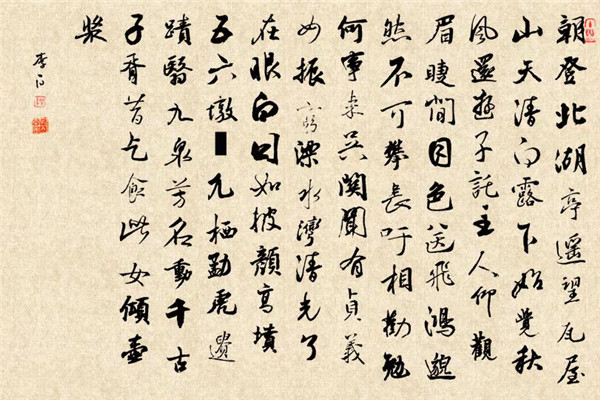 朝登北湖亭遥望瓦屋
山天清白露下始覺秋
風還遊子託主人仰觀
眉睫間目色送飛鴻邈
然不可攀長吁相勸勉
何事来吳関聞有貞義
女振窮溧水灣清光了
在眼白日如披顏高墳
五六墩兀栖勐虎遺
蹟醫九泉芳名動千古
子胥昔乞食此女傾壺
漿
李白